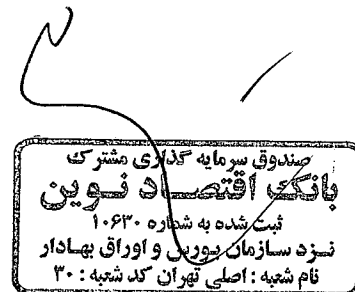 صندوق سرمایه گذاری مشترک
بانک اقتصاد نوین
ثبت شده به شماره ۱۰۶۳۰
نزد سازمان بورس و اوراق بهادار
نام شعبه : اصلی تهران کد شعبه : ۳۰